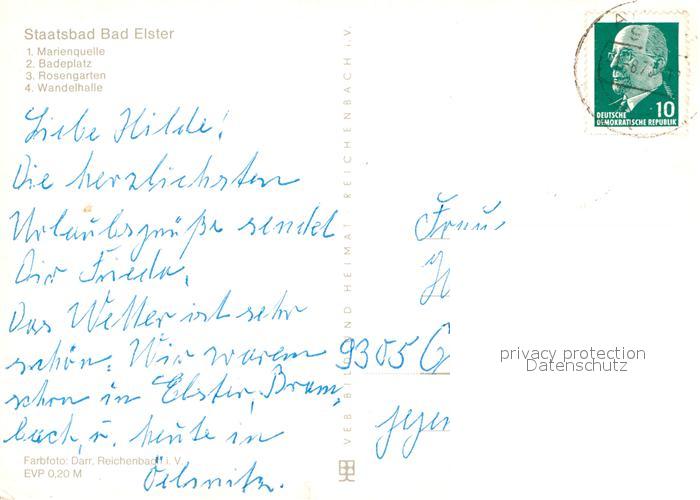 Staatsbad Bad Elster
1. Marienquelle
2. Badeplatz
3. Rosengarten
4. Wandelhalle
Liebe Hilde!
Die herzlichsten
Urlaubsgrüße sendet
Dir Frieda.
Das Wetter ist sehr
schön. Wir waren
schon in Elster, Bram,
bach, u. heute in
Oelsnitz.
Farbfoto: Darr, Reichenbach i. V.
EVP 0,20 M
VEB BILD UND HEIMAT REICHENBACH i.V.
DEUTSCHE
DEMOKRATISCHE REPUBLIK
10
Frau
H
9305 G
privacy protection
Datenschutz